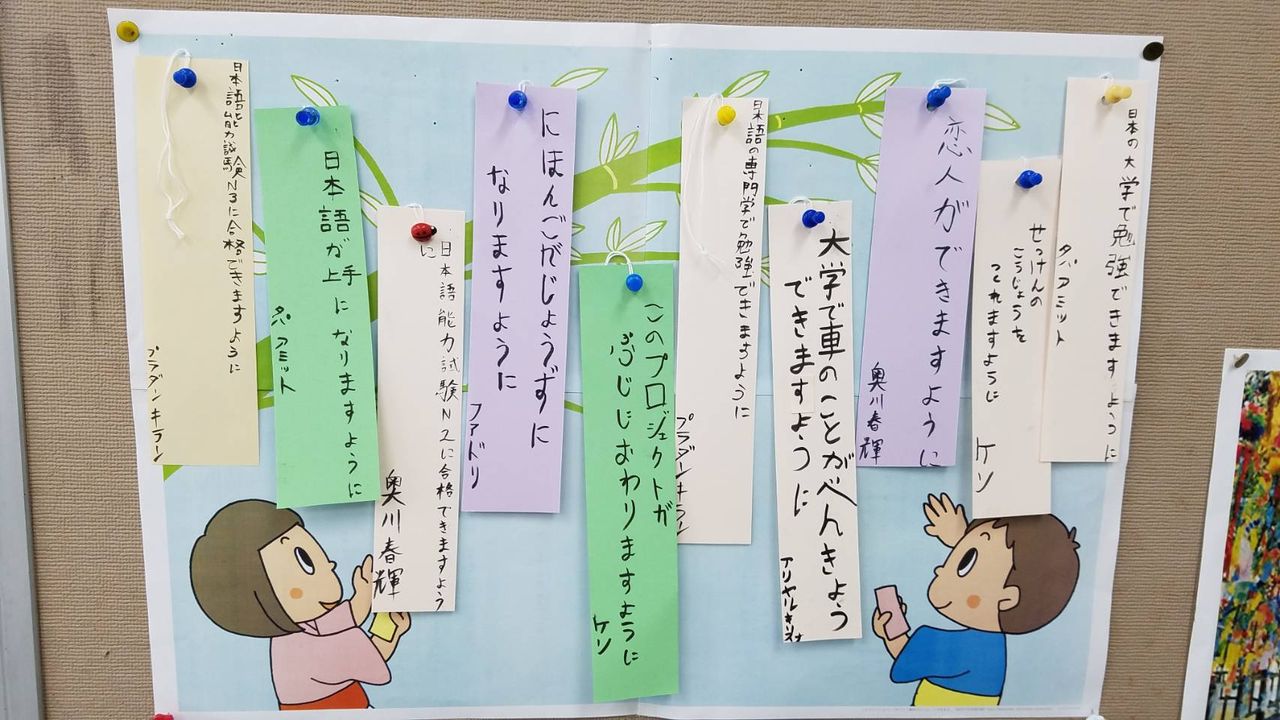 日本の大学で勉強できますように
タパ アミット
せっけんの
こうじょうを
つくれますように
ケソ
恋人ができますように
奥川春輝
大学で車のことがべんきょう
できますように
日本語の専門学で勉強できますように
プラダーンキラン
このプロジェクトが
ぶじじおわりますように
ケソ
にほんごがじょうずに
なりますように
ファドリ
日本語能力試験N2に合格できますよう
に
奥川春輝
日本語が上手になりますように
タパ アミット
日本語能力試験N3に合格できますように
プラダーンキラン